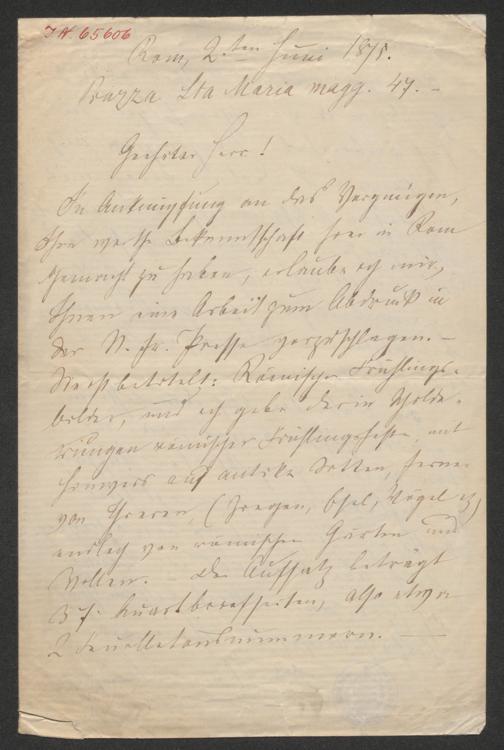 I.N. 65606
Rom, 2ten Juni 1875.
Piazza Sta Maria magg. 47. –
Geehrter Herr!
In Anknüpfung an das Vergnügen,
Ihre werthe Bekanntschaft hier in Rom
gemacht zu haben, erlaube ich mir,
Ihnen eine Arbeit zum Abdruck in
der N. fr. Presse vorzuschlagen. –
Sie ist betitelt: Römische Frühlings-
bilder, und ich gebe darin Schilde-
rungen römischer Frühlingsfeste, mit
Hinweis auf antike Sitten, ferner
von Thieren, (Ziegen, Esel, Vögel etc)
endlich von römischen Gärten und
Villen. Der Aufsatz beträgt
37. Quartbriefseiten, also etwa
2 Feuilletonsnummern. –